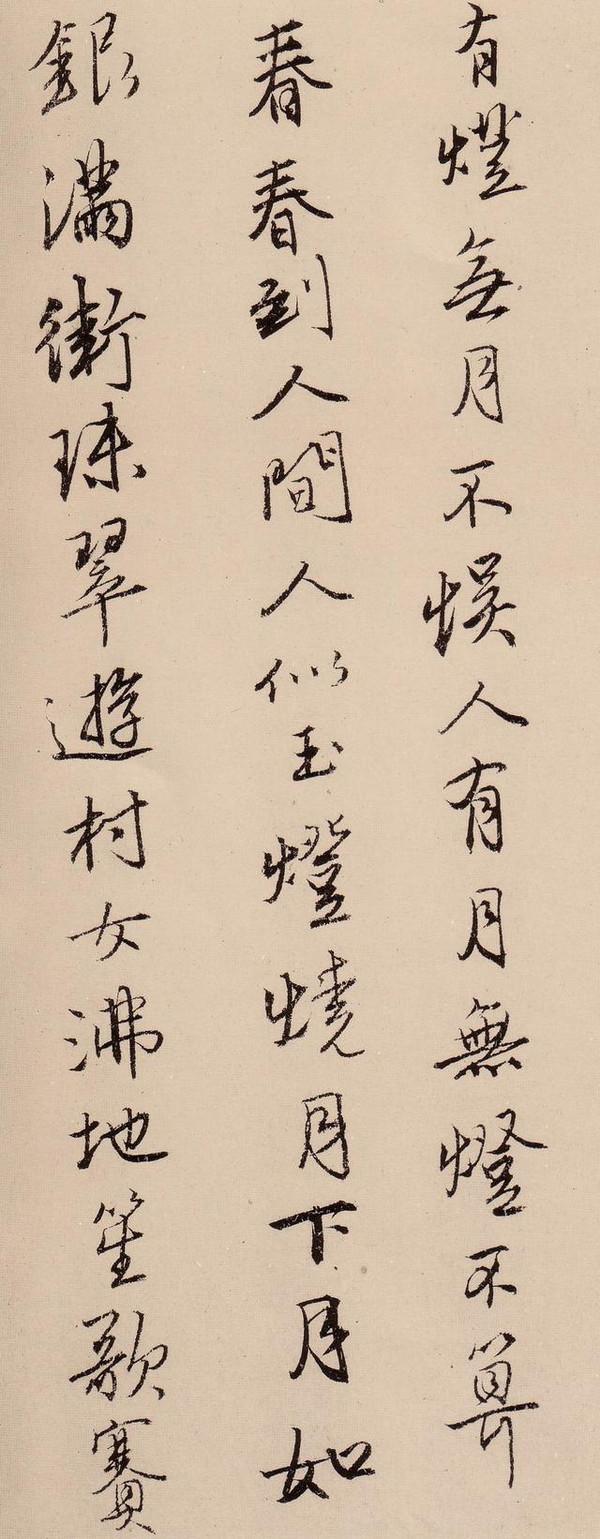 有燈無月不悞人有月無燈不算
春春到人間人似玉燈燒月下月如
銀滿街珠翠遊村女沸地笙歌賽